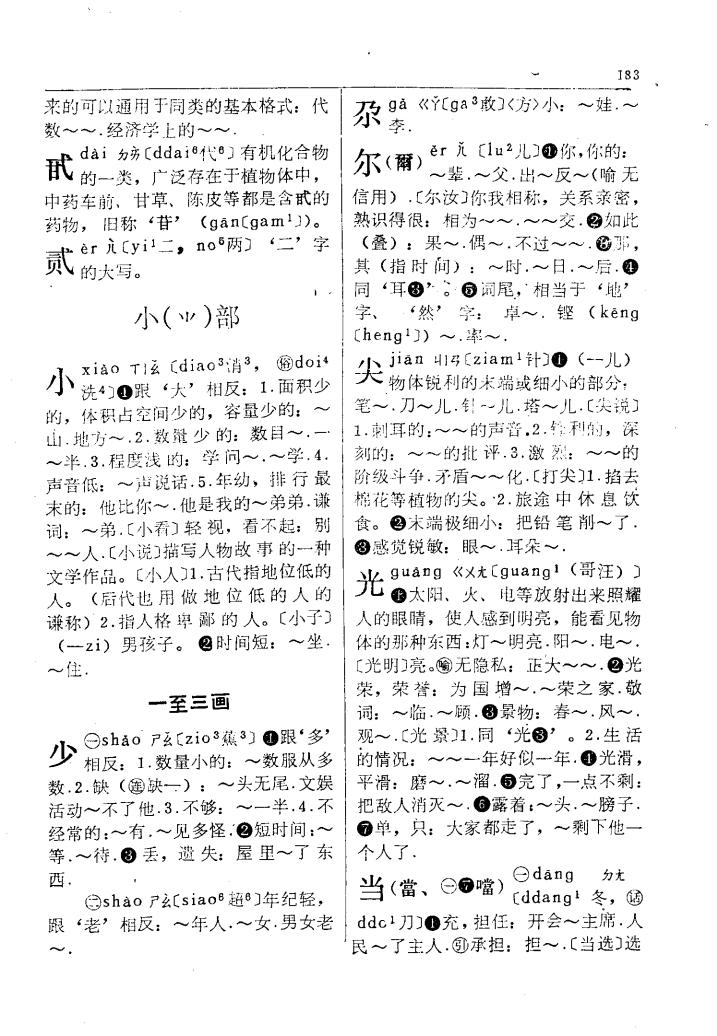 183
来的可以通用于同类的基本格式：代
数～～.经济学上的～～.
甙 dài ㄉㄞ〔ddai⁶代⁶〕有机化合物
的一类，广泛存在于植物体中，
中药车前、甘草、陈皮等都是含甙的
药物，旧称‘苷’（gān〔gam¹〕）。
贰 èr ㄦ〔yi¹二，no⁶两〕‘二’字
的大写。
小(⺌)部
小 xiǎo ㄒㄧㄠ〔diao³消³，㊙doi⁴
洗⁴〕❶跟‘大’相反：1.面积少
的，体积占空间少的，容量少的：～
山.地方～.2.数量少的：数目～.一
～半.3.程度浅的：学问～.～学.4.
声音低：～声说话.5.年幼，排行最
末的：他比你～.他是我的～弟弟.谦
词：～弟.〔小看〕轻视，看不起：别
～～人.〔小说〕描写人物故事的一种
文学作品。〔小人〕1.古代指地位低的
人。（后代也用做地位低的人的
谦称）2.指人格卑鄙的人。〔小子〕
（—zi）男孩子。❷时间短：～坐.
～住.
一至三画
少 ㊀shǎo ㄕㄠ〔zio³蕉³〕❶跟‘多’
相反：1.数量小的：～数服从多
数.2.缺（㊣缺—）：～头无尾.文娱
活动～不了他.3.不够：～一半.4.不
经常的：～有.～见多怪.❷短时间：～
等.～待.❸丢，遗失：屋里～了东
西.
㊁shào ㄕㄠ〔siao⁶超⁶〕年纪轻，
跟‘老’相反：～年人.～女.男女老
～.
尕 gǎ ㄍㄚ〔ga³敢〕〈方〉小：～娃.～
李.
尔(爾) ěr ㄦ〔lu²儿〕❶你，你的：
～辈.～父.出～反～(喻无
信用).〔尔汝〕你我相称，关系亲密，
熟识得很：相为～～.～～交.❷如此
（叠）：果～.偶～.不过～～.❸那，
其（指时间）：～时.～日.～后.❹
同‘耳❸’。❺词尾，相当于‘地’
字、‘然’字：卓～.铿（kēng
〔heng¹〕）～.率～.
尖 jiān ㄐㄧㄢ〔ziam¹针〕❶（—儿）
物体锐利的末端或细小的部分：
笔～.刀～儿.针～儿.塔～儿.〔尖锐〕
1.刺耳的：～～的声音.2.锋利的，深
刻的：～～的批评.3.激烈：～～的
阶级斗争.矛盾～～化.〔打尖〕1.掐去
棉花等植物的尖。2.旅途中休息饮
食。❷末端极细小：把铅笔削～了.
❸感觉锐敏：眼～.耳朵～.
光 guāng ㄍㄨㄤ〔guang¹（哥汪）〕
❶太阳、火、电等放射出来照耀
人的眼睛，使人感到明亮，能看见物
体的那种东西：灯～明亮.阳～.电～.
〔光明〕亮。㊙无隐私：正大～～.❷光
荣，荣誉：为国增～.～荣之家.敬
词：～临.～顾.❸景物：春～.风～.
观～.〔光景〕1.同‘光❸’。2.生活
的情况：～～一年好似一年.❹光滑，
平滑：磨～.～溜.❺完了，一点不剩：
把敌人消灭～.❻露着：～头.～膀子.
❼单，只：大家都走了，～剩下他一
个人了.
当(當、㊀❼噹) ㊀dāng ㄉㄤ
〔ddang¹冬，㊙
ddc¹刀〕❶充，担任：开会～主席.人
民～了主人.㊙承担：担～.〔当选〕选